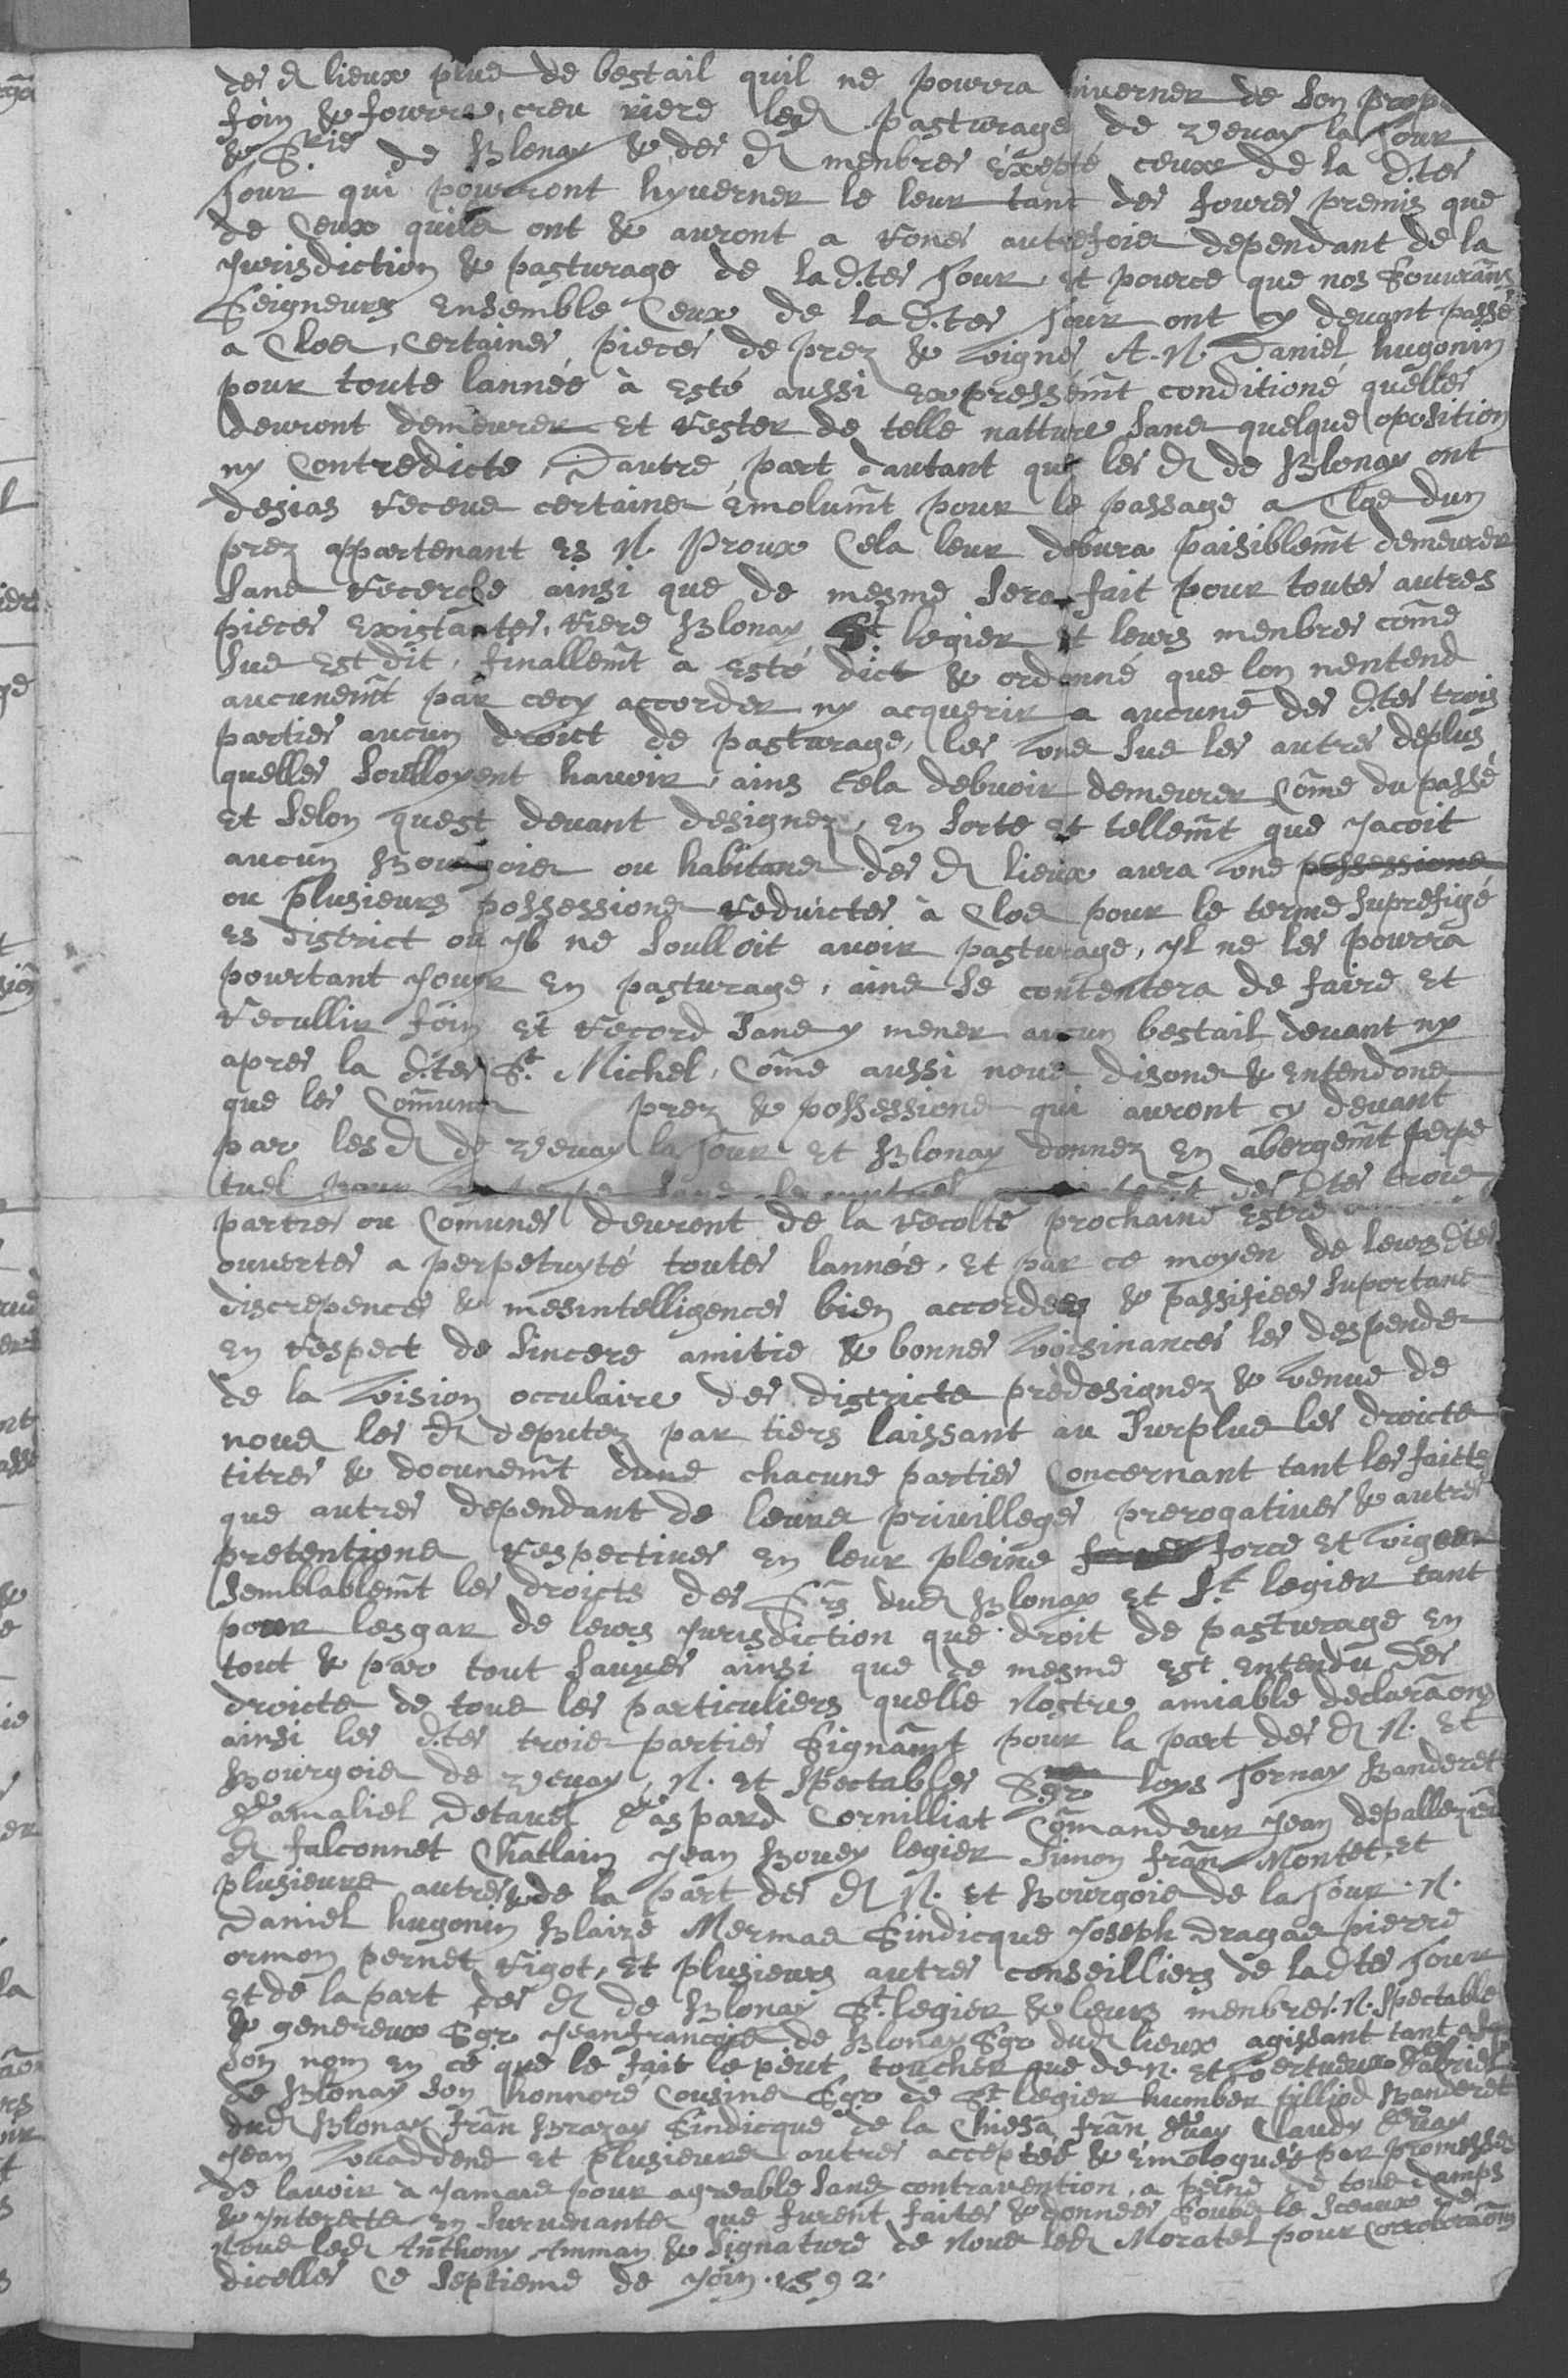 des d lieux plus de bestail quil ne pourra hiverner de son prop
foin & fourra, creu riere lesd pasturages de Vevay la Tour
& Srie de Blonay & des d menbres éxepté ceux de la d.te
Tour qui pourront hyverner le leur tant des foures premis que
de Ceux quils ont & auront a autrefois dependant de la
Jurisdiction & pasturage de la d.te Tour, Et pource que nos Souvrains
Seigneurs Ensemble Ceux de la d.te Tour ont cy devant passé
a Clos, Certaines pieces de prez & vignes A. N. Daniel hugonin
pour toute lannée à Esté aussi Expressémt conditioné quelles
devront demeurer Et rester de telle natture sans quelque oposition
ny Contredicte, Dautre part dautant que les d de Blonay ont
desias receus certaines Emolumt pour le passage a Clos dun
prez appartenant Es N. Proux Cela leur debvra paisiblemt demeurer
sans recerche ainsi que de mesme sera fait pour toutes autres
pieces Existantes, riere Blonay, St. legier Et leurs menbres cõme
sus Est dit, finallemt à esté dict & ordonné que lon nentend
aucunemt par cecy accorder ny acquerir a aucune des d.tes trois
parties aucun droict de pasturage, les uns sus les autres deplus
quelles soulloyent havoir, ains Cela debvoir demeurer Cõme du passé
Et selon quest devant designez, En sorte Et tellemt que Jacoit
aucun Bourgois ou habitans des d lieux aura une possessions
ou plusieurs possessions reduictes à Clos pour le terme suprefigé
Es district ou Jl ne soulloit avoir pasturage, Jl ne les pourra
pourtant Jouyr En pasturage, ains se contentera de faire Et
recullir foin Et record sans y mener aucun bestail devant ny
apres la d.te St. Michel, Cõme aussi nous disons & Entendons
que les Comuns prez & possessions qui auront cy devant
par les d de Vevay la Tour Et Blonay donnez En abergemt perpe
tuel pour sans le des d.tes trois
parties ou Comunes devront de la recolte prochaine Estre
ouvertes a perpetuyté toutes lannée, Et par ce moyen de leursdtes
discrepences & mesintelligences bien accordees & passifiees suportans
En respect de sincere amitie & bonnes voisinances les despends
de la vision occulaire des districts prèdesignez & venue de
nous les d deputez par tiers laissant au surplus les droicts
titres & documemt dune chacune parties Concernant tant les faitts
que autres dependant de leurs privilleges prerogatives & autres
pretentions respectives En leur pleine force Et vigeur
semblablemt les droicts des Srs dud Blonay Et St. legier tant
pour lesgar de leurs Jurisdiction que droit de pasturage En
tout & par tout sauves ainsi que de mesme Est Entendu Des
droicts de tous les particuliers quelle Nostre amiable declaraõn
ainsi les d.tes trois parties Signãmt pour la part des d N. Et
Bourgois de Vevay, N. Et Spectables Sgr loys Tornay Banderet
Gamaliel Detavel Gaspard Cornilliat Cõmandeur Jean depallezieu
d falconnet Châtlain Jean Bovey legier Simon frãn Montet, Et
plusieurs autres & de la part des d N. Et Bourgois de la Tour. N.
Daniel hugonin Blaize Mermas Sindicque Joseph dragas pierre
ormon pernet rigot, Et plusieurs autres conseilliers de ladte Tour
Et de la part des d de Blonay St. legier & leurs menbres. N. spectable
& genereux Sgr Jeanfrancois de Blonay Sgr dud lieux agissant tant a
son nom En ce que le fait le peut toucher que de N. Et vertueux Gabriel
de Blonay son honnoré Cousine Sgr de St legier humber pilliod Banderet
dud Blonay frãn Brazay Sindicque de la Chiesa frãn Claudy
Jean Et plusieurs autres acceptée & émologuée par promesses
de lavoir à Jamais pour agreable sans contravention, a peine de tous damps
& Jnterects En survenants que furent faites & données Soubs le Sceaux de
Nous led Anthony Amman & Signature de Nous led Moratel pour corroboraõn
dicelles Ce Septieme de Join. 1592.